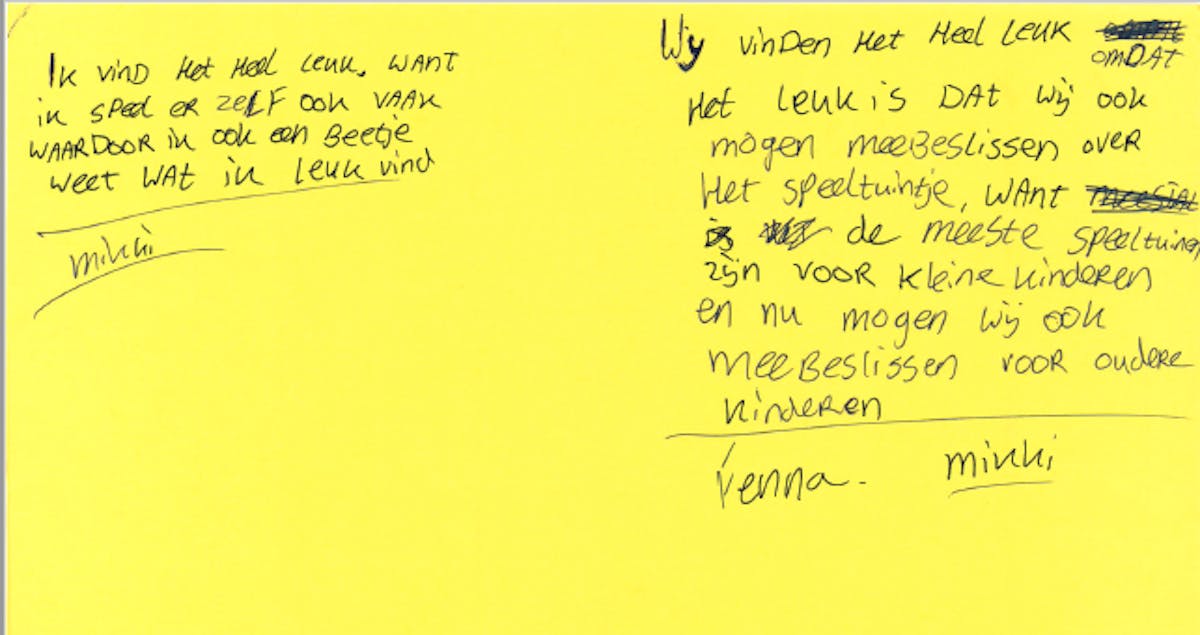 Ik vind het heel leuk, want
ik speel er zelf ook vaak
waardoor ik ook een beetje
weet wat ik leuk vind
mikki
Wij vinden het heel leuk
omdat
het leuk is dat wij ook
mogen meebeslissen over
het speeltuintje, want
de meeste speeltuinen
zijn voor kleine kinderen
en nu mogen wij ook
meebeslissen voor oudere
kinderen
mikki